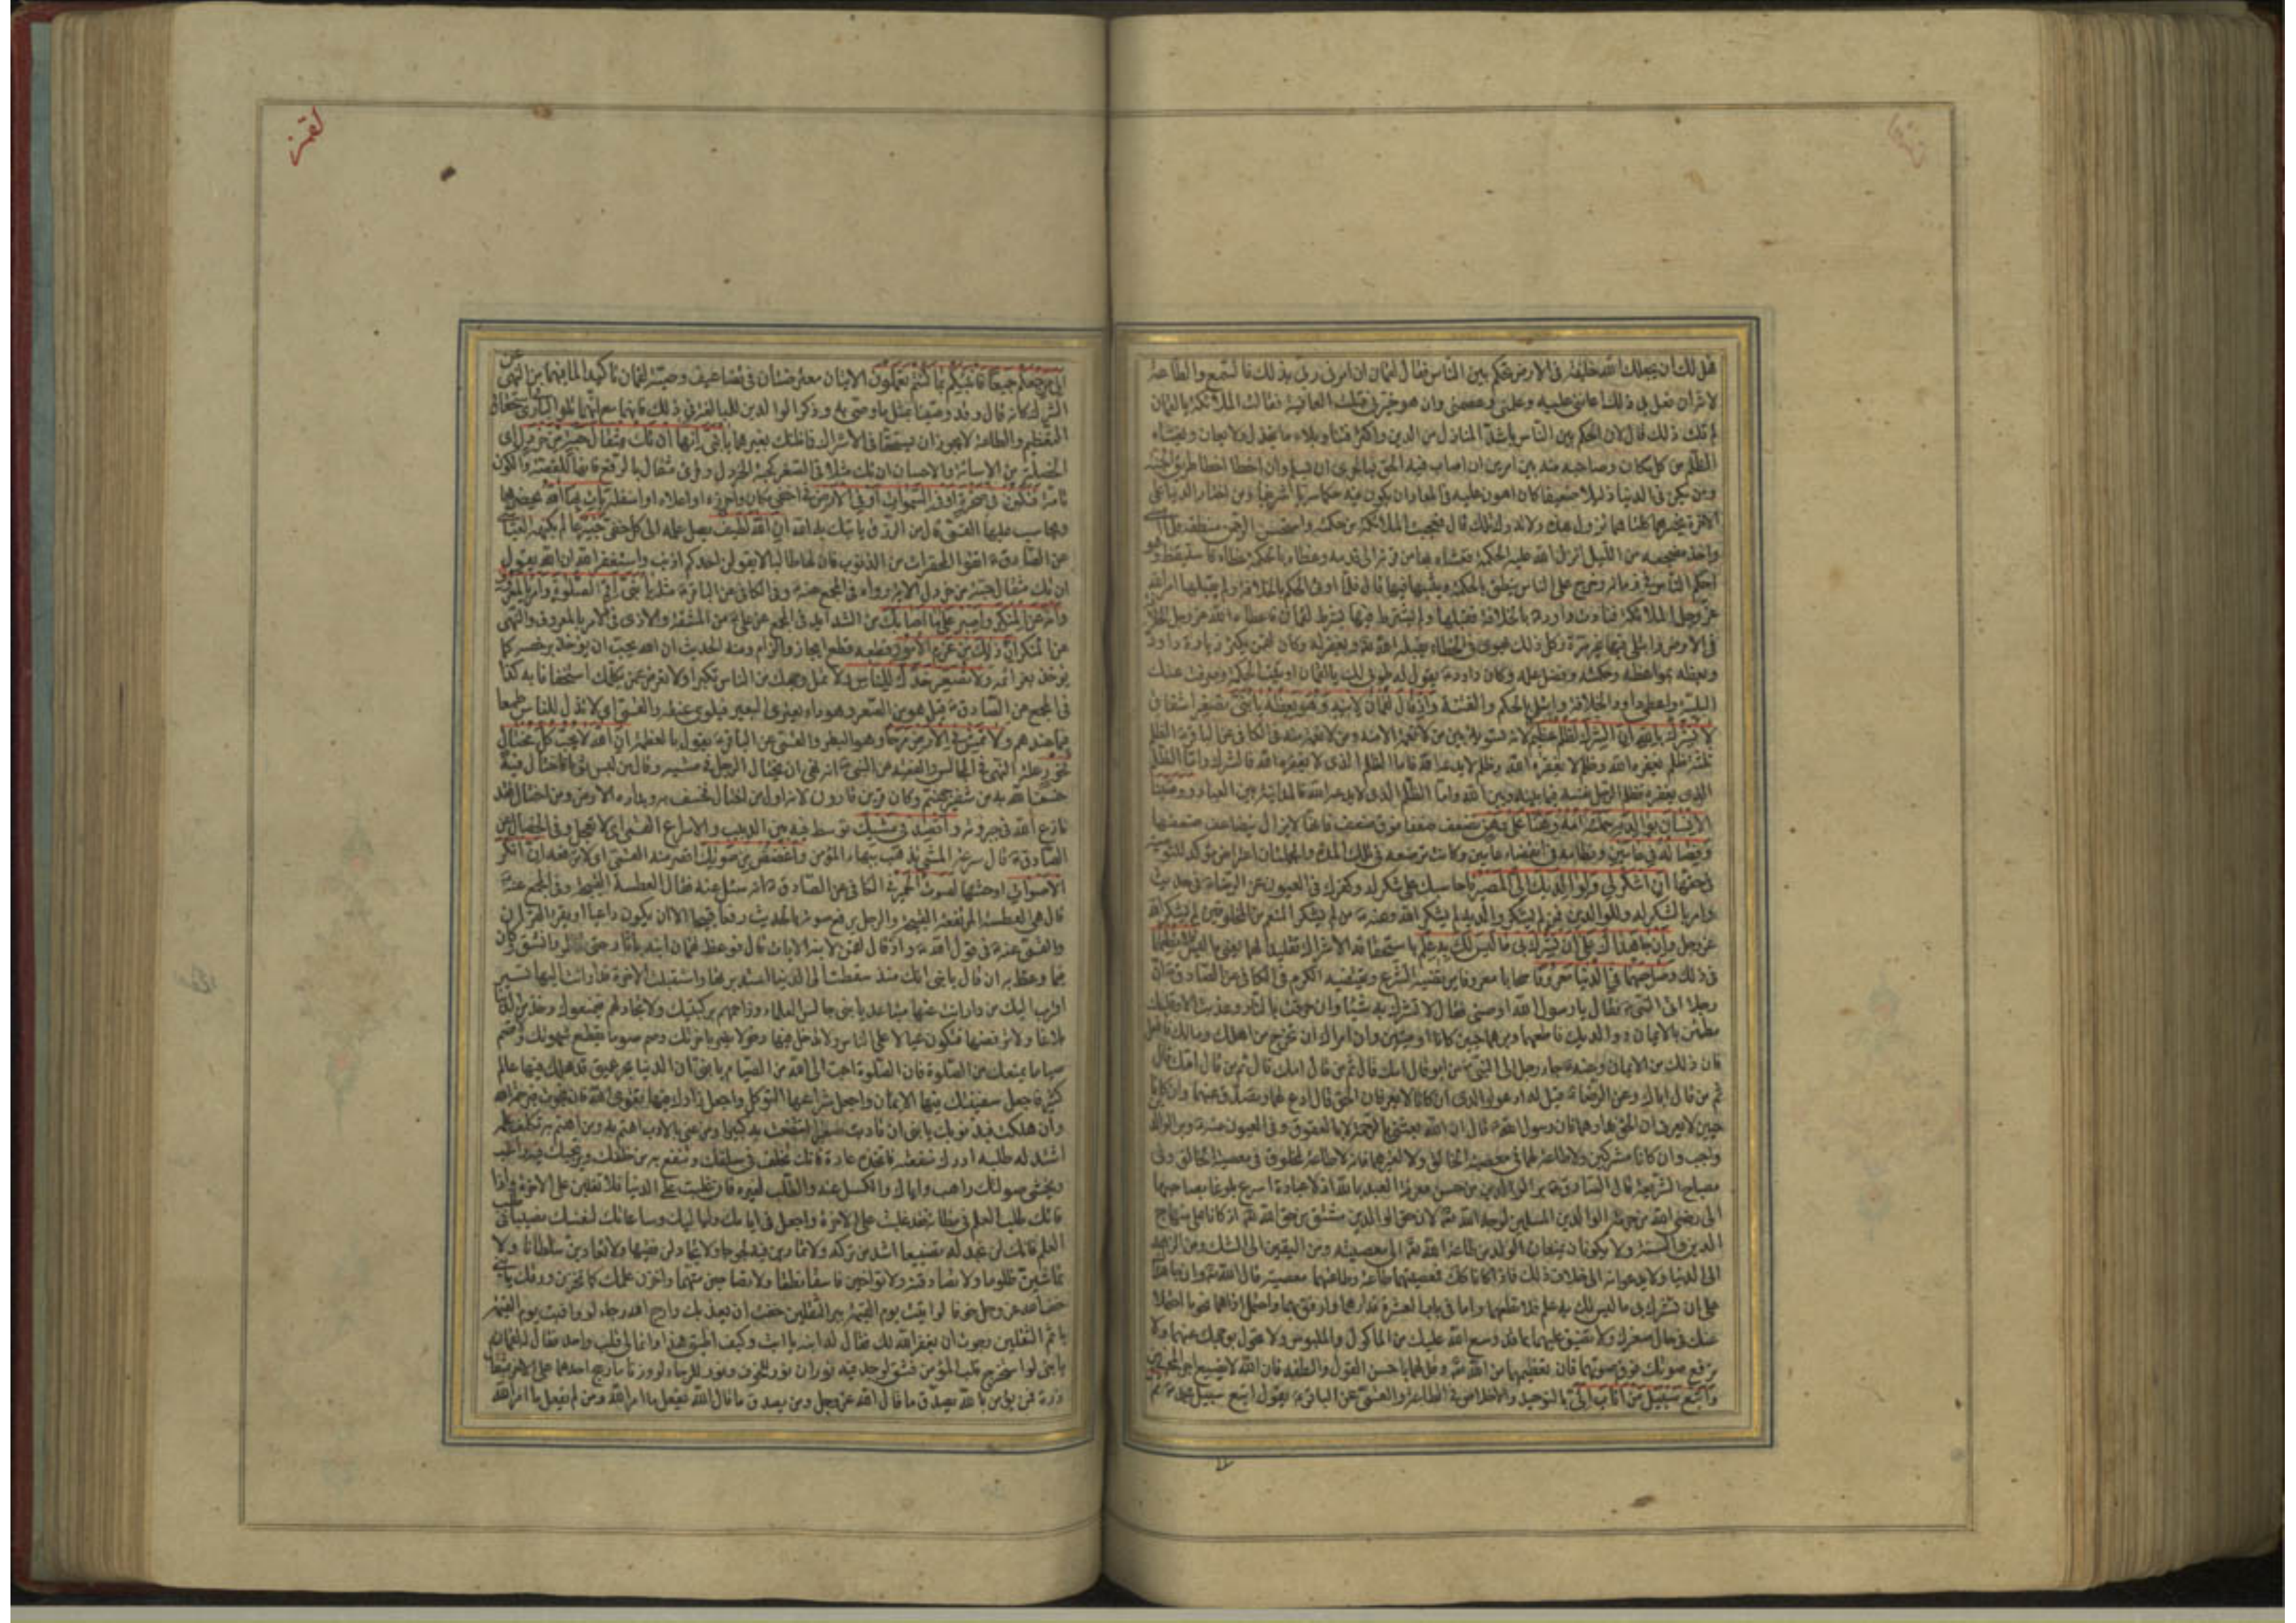 هل لك أن يجعلك الله خليفة فى الارض تحكم بين الناس فقال لقمان ان امرنى ربى بذلك فالسمع والطاعة
لانه ان فعل بى ذلك اعاننى عليه وعلمنى وعصمنى وان هو خيرنى قبلت العافية فقالت الملائكة يا لقمان
لم قلت ذلك قال لان الحكم بين الناس باشد المنازل من الدين واكثر فتنا وبلاء ما يخذل ولا يعان ويغشاه
الظلم من كل مكان وصاحبه منه بين امرين ان اصاب فيه الحق فبالحرى ان يسلم وان اخطا اخطا طريق الجنة
ومن يكن فى الدنيا ذليلا ضعيفا كان اهون عليه فى المعاد ان يكون فيه حكما سريا شريفا ومن اختار الدنيا على
الاخرة يخسرهما كلتاهما تزول هذه ولا تدرك تلك قال فتعجبت الملائكة من حكمته واستحسن الرحمن منطقه فلما امسى
واخذ مضجعه من الليل انزل الله عليه الحكمة فغشاه بها من قرنه الى قدمه وهو نائم وغطاه بالحكمة غطاء فاستيقظ وهو
احكم الناس فى زمانه وخرج على الناس ينطق بالحكمة ويبثها فيها قال فلما اوتى الحكم بالخلافة ولم يقبلها امر الله
عز وجل الملائكة فنادت داود بالخلافة فقبلها ولم يشترط فيها بشرط لقمان فاعطاه الله عز وجل الخلافة
فى الارض وابتلى فيها غير مرة وكل ذلك يهوى فى الخطاء يقيله الله تع ويغفر له وكان لقمن يكثر زيارة داود
ويعظه بمواعظه وحكمته وفضل علمه وكان داود يقول له طوبى لك يا لقمان اوتيت الحكمة وصرفت عنك
البلية واعطى داود الخلافة وابتلى بالحكم والفتنة واذ قال لقمان لابنه وهو يعظه يا بنى تصغير اشفاق
لا تشرك بالله ان الشرك لظلم عظيم لانه تسوية بين من لا نعمة الا منه ومن لا نعمة منه فى الكافى عن الباقر ع الظلم
ثلثة ظلم يغفره الله وظلم لا يغفره الله وظلم لا يدعه الله فاما الظلم الذى لا يغفره الله فالشرك واما الظلم
الذى يغفره فظلم الرجل نفسه فيما بينه وبين الله واما الظلم الذى لا يدعه الله فالمداينة بين العباد ووصينا
الانسان بوالديه حملته امه وهنا على وهن تضعف ضعفا فوق ضعف فانها لا يزال يتضاعف ضعفها
وفصاله فى عامين وفطامه فى انقضاء عامين وكانت ترضعه فى تلك المدة والجملتان اعتراض مؤكد للتوصية
فى حقها ان اشكر لى ولوالديك الى المصير فاحاسبك على شكرك وكفرك فى العيون عن الرضا ع فى حديث
وامر بالشكر له وللوالدين فمن لم يشكر والديه لم يشكر الله وعنه ع من لم يشكر المنعم من المخلوقين لم يشكر الله
عز وجل وان جاهداك على ان تشرك بى ما ليس لك به علم باستحقاقه الاشراك تقليدا لهما يعنى ما ليس فلا تطعهما
فى ذلك وصاحبهما فى الدنيا معروفا صحابا معروفا يرتضيه الشرع ويقتضيه الكرم فى الكافى عن الصادق ع ان
رجلا اتى النبى ص فقال يا رسول الله اوصنى فقال لا تشرك بالله شيئا وان حرقت بالنار وعذبت الا وقلبك
مطمئن بالايمان ووالديك فاطعهما وبرهما حيين كانا او ميتين وان امراك ان تخرج من اهلك ومالك فافعل
فان ذلك من الايمان وعنه ع جاء رجل الى النبى ص من ابر قال امك قال ثم من قال امك قال ثم من قال امك قال
ثم من قال اباك وعن الرضا ع قيل له ادعو لوالدى ان كانا لا يعرفان الحق قال ادع لهما وتصدق عنهما وان كانا
حيين لا يعرفان الحق فدارهما فان رسول الله ص قال ان الله بعثنى بالرحمة لا بالعقوق وفى العيون عنه ع وبر الوالدين
واجب وان كانا مشركين ولا طاعة لهما فى معصية الخالق ولا لغيرهما فانه لا طاعة لمخلوق فى معصية الخالق وفى
مصباح الشريعة قال الصادق ع بر الوالدين من حسن معرفة العبد بالله اذ لا عبادة اسرع بلوغا بصاحبها
الى رضى الله من حرمة الوالدين المسلمين لوجه الله تع لان حق الوالدين مشتق من حق الله تع اذ كانا على منهاج
الدين والسنة ولا يكونان يمنعان الولد من طاعة الله تع الى معصيته ومن اليقين الى الشك ومن الزهد
الى الدنيا ولا يدعوانه الى خلاف ذلك فاذا كانا كك فمعصيتهما طاعة وطاعتهما معصية قال الله تع وان جاهداك
على ان تشرك بى ما ليس لك به علم فلا تطعهما واما فى باب العشرة فدارهما وارفق بهما واحتمل اذاهما نحو ما احتملا
عنك فى حال صغرك ولا تضيق عليهما مما قد وسع الله عليك من الماكول والملبوس ولا تحول بوجهك عنهما ولا
ترفع صوتك فوق صوتهما فان تعظيمهما من الله تع وقل لهما باحسن القول والطفه فان الله لا يضيع اجر المحسنين
واتبع سبيل من اناب الى بالتوحيد والاخلاص فى الطاعة والقمى عن الباقر ع يقول اتبع سبيل محمد ص ثم
لقمن
الى مرجعكم جميعا فانبئكم بما كنتم تعملون الايتان معترضتان فى تضاعيف وصية لقمان تاكيدا لما فيهما من النهى عن
الشرك كانه قال وقد وصينا بمثل ما وصى به وذكر الوالدين للمبالغة فى ذلك فانهما مع انهما تلو البارى فى استحقاق
التعظيم والطاعة لا يجوز ان يستحقا فى الاشراك فما ظنك بغيرهما يا بنى انها ان تك مثقال حبة من خردل اى
الخصلة من الاساءة والاحسان ان تك مثلا فى الصغر كحبة الخردل وقرئ مثقال بالرفع فالهاء للقصة والكون
تامة فتكن فى صخرة او فى السموات او فى الارض فى اخفى مكان واحرزه او اعلاه او اسفله يأت بها الله يحضرها
ويحاسب عليها القمى قال من الرزق ياتيك به الله ان الله لطيف يصل علمه الى كل خفى خبير عالم بكنهه العياشى
عن الصادق ع اتقوا المحقرات من الذنوب فان لها طالبا لا يقولن احدكم اذنب واستغفر الله ان الله يقول
ان تك مثقال حبة من خردل الاية ورواه فى المجمع عنه ع وفى الكافى عن الباقر ع مثله يا بنى اقم الصلوة وأمر بالمعروف
وانه عن المنكر واصبر على ما اصابك من الشدايد فى المجمع عن على ع من المشقة والاذى فى الامر بالمعروف والنهى
عن المنكر ان ذلك من عزم الامور قطعه قطع ايجاب والزام ومنه الحديث ان الله يحب ان يؤخذ برخصه كما
يؤخذ بعزائمه ولا تصعر خدك للناس لا تمل وجهك من الناس تكبرا ولا تعرض عمن يكلمك استخفافا به كذا
فى المجمع عن الصادق ع قيل هو من الصعر وهو داء يعترى البعير فيلوى عنقه والقمى اى لا تذل للناس طمعا
فيما عندهم ولا تمش فى الارض مرحا وهو البطر والقمى عن الباقر ع يقول بالعظمة ان الله لا يحب كل مختال
فخور علة النهى فى المجالس والفقيه عن النبى ص انه نهى ان يختال الرجل فى مشيه وقال من لبس ثوبا فاختال فيه
خسف الله به من شفير جهنم وكان قرين قارون لانه اول من اختال فخسف به وبداره الارض ومن اختال فقد
نازع الله فى جبروته واقصد فى مشيك توسط فيه بين الدبيب والاسراع القمى اى لا تعجل وفى الخصال عن
الصادق ع قال سرعة المشى يذهب ببهاء المؤمن واغضض من صوتك اقصر منه القمى اى لا ترفعه ان انكر
الاصوات اوحشها لصوت الحمير فى الكافى عن الصادق ع انه سئل عنه فقال العطسة القبيحة وفى المجمع عنه ع
قال هى العطسة المرتفعة القبيحة والرجل يرفع صوته بالحديث رفعا قبيحا الا ان يكون داعيا او يقرء القرآن
والقمى عنه ع فى قول الله ع واذ قال لقمن لابنه الايات قال فوعظ لقمان ابنه باثار حتى تفطر وانشق وكان
فيما وعظ به ان قال يا بنى انك منذ سقطت الى الدنيا استدبرتها واستقبلت الاخرة فدار انت اليها تسير
اقرب اليك من دار انت عنها متباعد يا بنى جالس العلماء وزاحمهم بركبتيك ولا تجادلهم فيمنعوك وخذ من الدنيا
بلاغا ولا ترفضها فتكون عيالا على الناس ولا تدخل فيها دخولا يضر باخرتك وصم صوما يقطع شهوتك ولا تصم
صياما يمنعك من الصلوة فان الصلوة احب الى الله من الصيام يا بنى ان الدنيا بحر عميق قد هلك فيها عالم
كثير فاجعل سفينتك فيها الايمان واجعل شراعها التوكل واجعل زادك فيها تقوى الله فان نجوت فبرحمة الله
وان هلكت فبذنوبك يا بنى ان تادبت صغيرا انتفعت به كبيرا ومن عنى بالادب اهتم به ومن اهتم به تكلف علمه
اشتد له طلبه ادرك منفعته فاتخذه عادة فانك تخلف فى سلفك وتنفع به من خلفك ويرتجيك فيه راغب
ويخشى صولتك راهب واياك والكسل عنه والطلب لغيره فان غلبت على الدنيا فلا تغلبن على الاخرة واذا فاتك
طلب العلم فى مظانه فقد غلبت على الاخرة واجعل فى ايامك ولياليك وساعاتك لنفسك نصيبا فى طلب
العلم فانك لن تجد له تضييعا اشد من تركه ولا تمارين فيه لجوجا ولا تجادلن فقيها ولا تعادين سلطانا ولا
تماشين ظلوما ولا تصادقنه ولا تواخين فاسقا نطفا ولا تصاحبن متهما واخزن علمك كما تخزن ورقك يا بنى
خف الله عز وجل خوفا لو اتيت يوم القيمة ببر الثقلين خفت ان يعذبك وارج الله رجاء لو وافيت يوم القيمة
باثم الثقلين رجوت ان يغفر الله لك فقال له ابنه يا ابت وكيف اطيق هذا وانما لى قلب واحد فقال له لقمان
يا بنى لو استخرج قلب المؤمن فشق لوجد فيه نوران نور للخوف ونور للرجاء لو وزنا ما رجح احدهما على الاخر بمثقال
ذرة فمن يؤمن بالله يصدق ما قال الله عز وجل ومن يصدق ما قال الله يفعل ما امر الله ومن لم يفعل ما امر الله